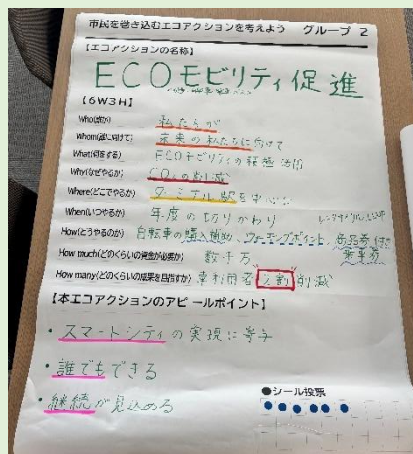 市民を巻き込むエコアクションを考えよう グループ 2
【エコアクションの名称】
ECOモビリティ促進
【6W3H】
Who(誰が) 私たちが
Whom(誰に向けて) 未来の私たちに向けて
What(何をする) ECOモビリティの積極活用
Why(なぜやるか) CO₂の削減
Where(どこでやるか) ターミナル駅を中心に
When(いつやるか) 年度の切りかわり
How(どうやるのか) 自転車の購入補助、ウォーキングポイント、商品券付き乗車券
How much(どのくらいの資金が必要か) 数千万
How many(どのくらいの成果を目指すか) 車利用者 割削減
【本エコアクションのアピールポイント】
・スマートシティの実現に寄与
・誰でもできる
・継続が見込める
●シール投票